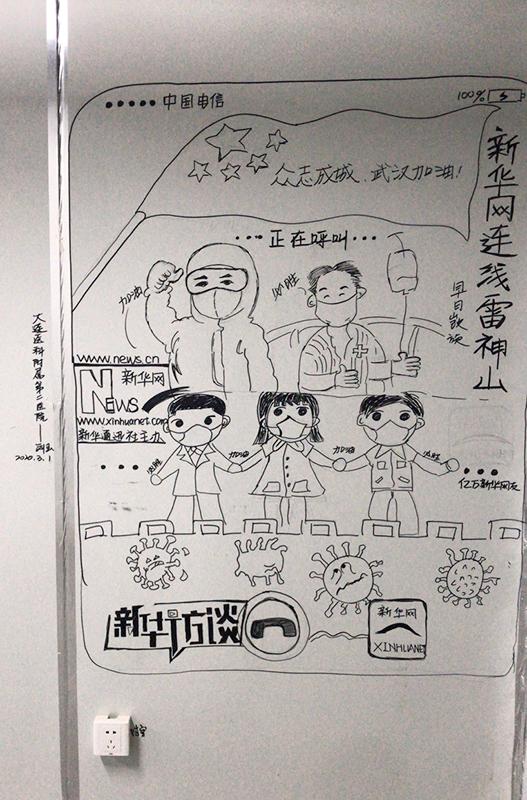 中国电信
100%
众志成城、武汉加油！
···正在呼叫···
新华网连线雷神山
早日凯旋
加油
必胜
www.news.cn
NEWS 新华网
www.xinhuanet.com
新华通讯社主办
必胜
加油
加油
必胜
亿万新华网友
新华访谈
新华网
XINHUANET
大连医科附属第二医院
2020.3.1